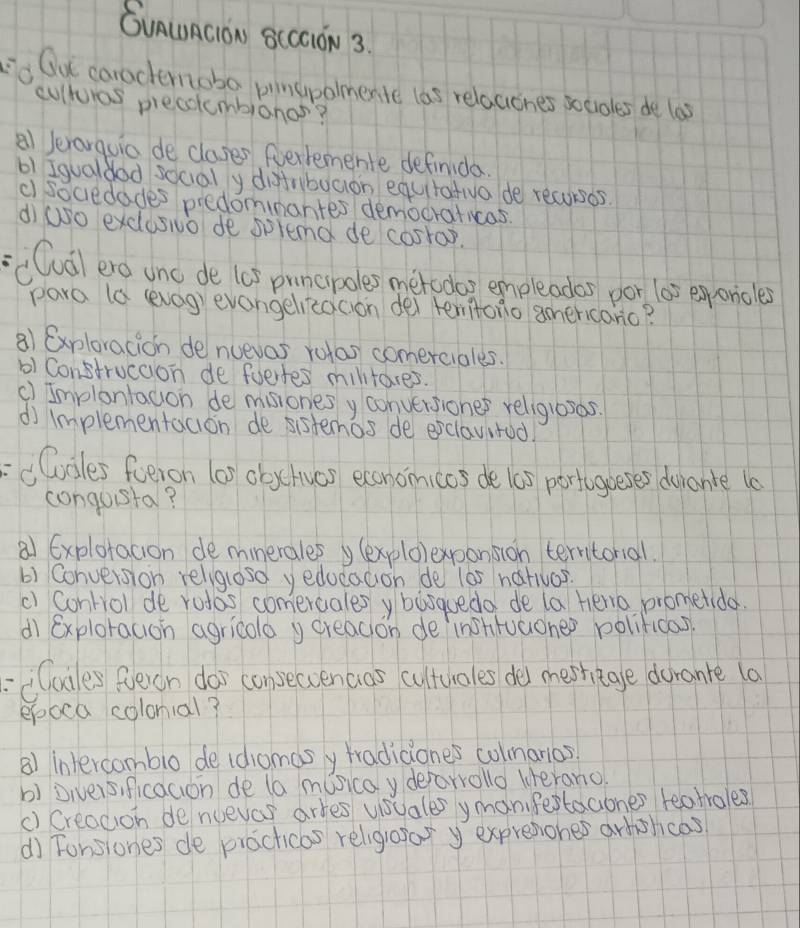 EVALUACIÓN SECCIÓN 3.
¿Qué caracterizaba principalmente las relaciones sociales de las
culturas precolombianas?
a) Jerarquía de clases fuertemente definida.
b) Igualdad social y distribución equitativa de recursos.
c) Sociedades predominantes democraticas.
d) Uso exclusivo de sistema de castas.
¿Cuál era uno de los principales métodos empleados por los españoles
para la (evag) evangelización del territorio americano?
a) Exploración de nuevas rutas comerciales.
b) Construcción de fuertes militares.
c) Implantación de misiones y conversiones religiosas.
d) Implementación de sistemas de esclavitud.
¿Cuáles fueron los objetivos económicos de los portugueses durante la
conquista?
a) Explotación de minerales y (explo) expansión territorial.
b) Conversión religiosa y educación de los nativos.
c) Control de rutas comerciales y búsqueda de la tierra prometida.
d) Explotación agrícola y creación de instituciones políticas.
¿Cuáles fueron dos consecuencias culturales del mestizaje durante la
época colonial?
a) intercambio de idiomas y tradiciones culinarias.
b) Diversificación de la música y desarrollo literario.
c) Creación de nuevas artes visuales y manifestaciones teatrales.
d) Fusiones de prácticas religiosas y expresiones artísticas